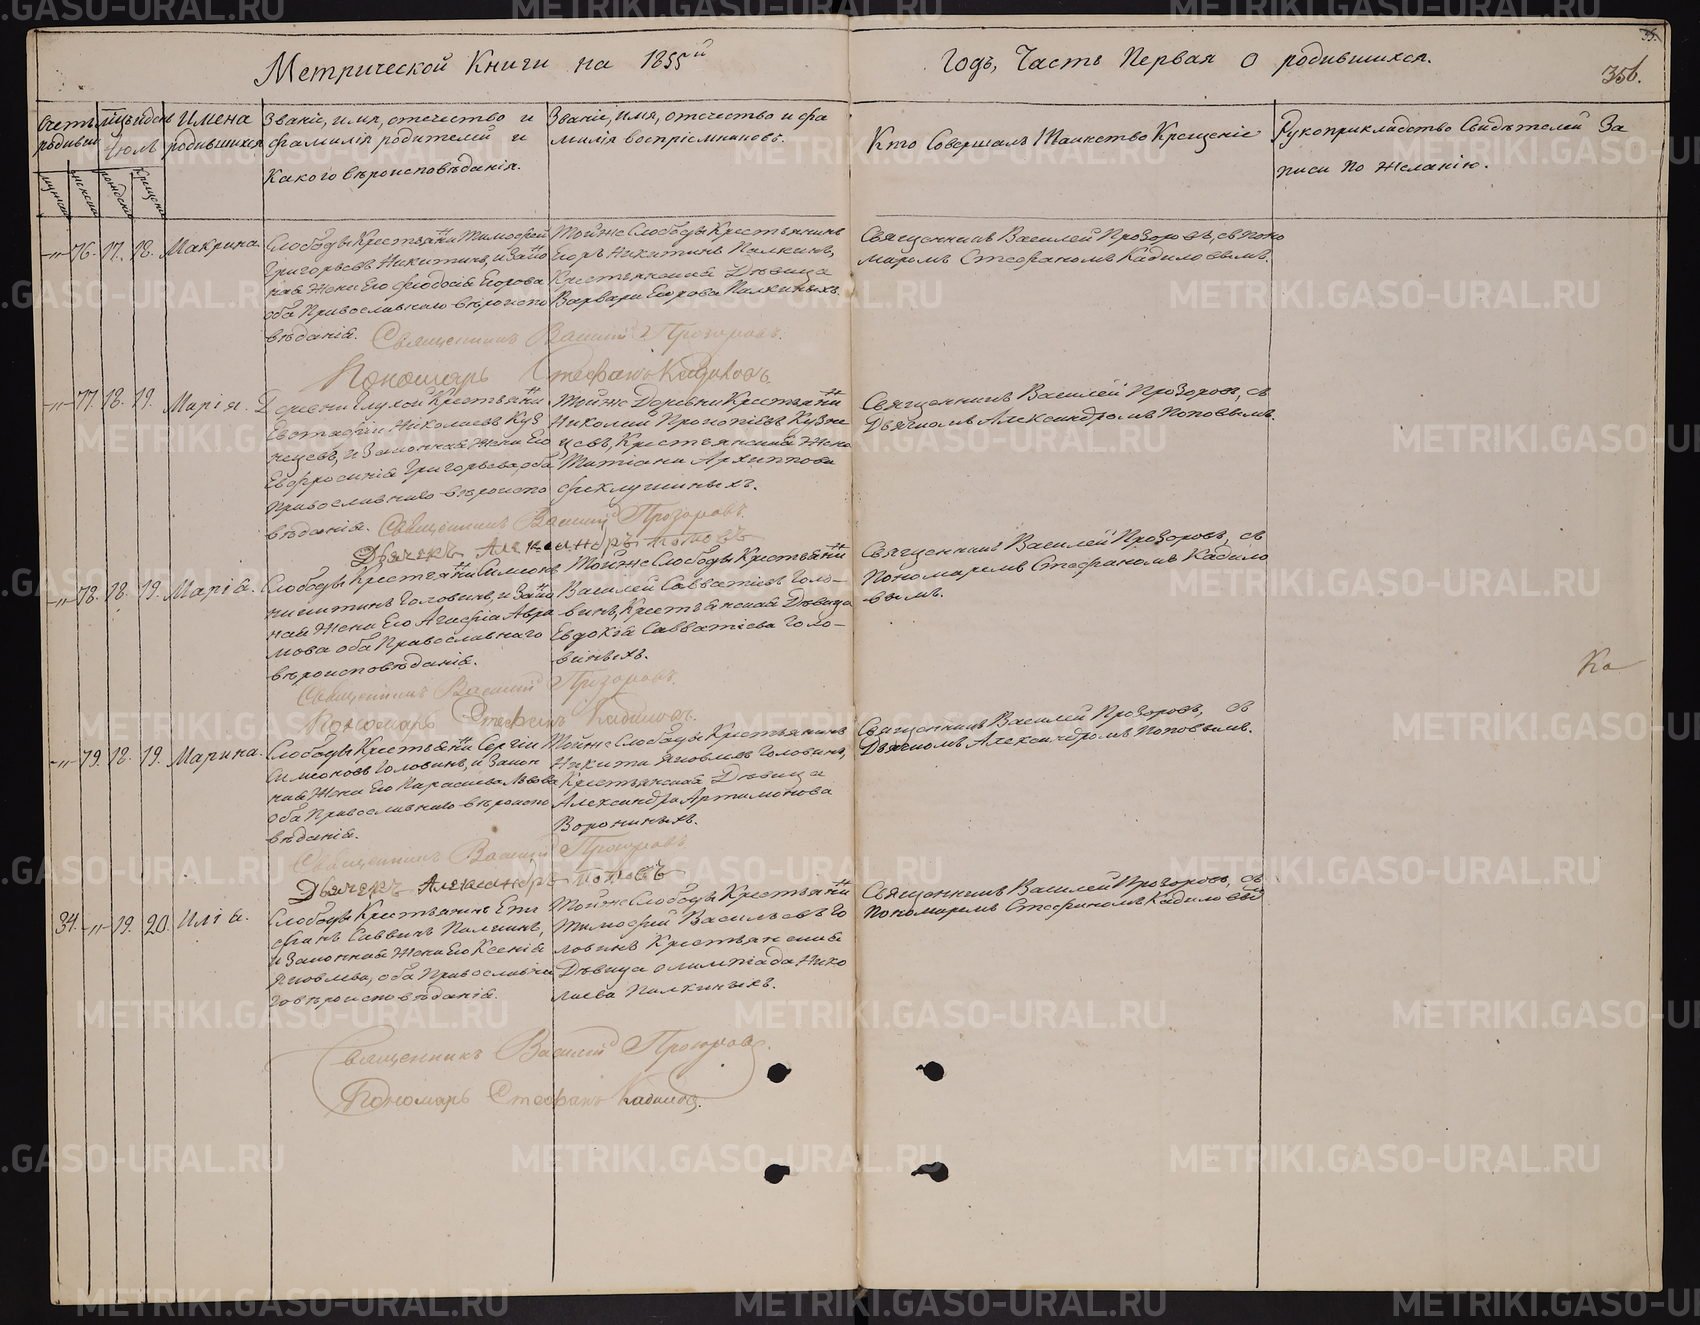 Метрической Книги на 1855й
Годъ, Часть Первая о родившихся.
35.
356.
Счетъ родивш
Мцъ и день
Июль
Имена
родившихся
мужеска
женска
рожденія
крещенія
Званіе, имя, отечество и
фамилія родителей и
Какого вѣроисповѣданія.
Званіе, имя, отечество и фа
милія воспріемниковъ.
Кто Совершалъ Таинство Крещенія
Рукоприкладство Свидѣтелей За
писи по желанію.
-"- 76. 17. 18. Макрина
Слободы Крестьянинъ Тимофей
Григорьевъ Никитинъ, и Зако
ная Жена Его Феодосія Егорова
оба Православнаго вѣроиспо
вѣданія.
Тойже Слободы Крестьянинъ
Егоръ Никитинъ Палкинъ,
Крестьянская Дѣвица
Варвара Егорова Палкиныхъ.
Священникъ Василей Прозоровъ, съ поно
маремъ Стефаномъ Кадиловымъ.
Священникъ Василій Прозоровъ.
Пономарь Стефанъ Кадиловъ.
-"- 77. 18. 19. Марія.
Деревни Глухой Крестьянинъ
Евстафій Николаевъ Куз
нецовъ, и Законная Жена Его
Евфросинія Григорьева, оба
Православнаго вѣроиспо
вѣданія.
Тойже Деревни Крестьянинъ
Николай Прокопіевъ Кузне
цовъ, Крестьянская Жена
Татіана Архиппова
Феклушиныхъ.
Священникъ Василей Прозоровъ, съ
Дьячкомъ Александромъ Поповымъ.
Священникъ Василій Прозоровъ.
Дьячекъ Александръ Поповъ
-"- 78. 18. 19. Марія.
Слободы Крестьянинъ Симеонъ
Никитинъ Головинъ, и Зако
ная Жена Его Агафіа Авра
мова оба Православнаго
вѣроисповѣданія.
Тойже Слободы Крестьянинъ
Василей Савватіевъ Голо-
винъ, Крестьянская Дѣвица
Евдокія Савватіева Голо-
виныхъ.
Священникъ Василей Прозоровъ, съ
Пономаремъ Стефаномъ Кадило
вымъ.
Священникъ Василій Прозоровъ.
Пономарь Стефанъ Кадиловъ.
Ка
-"- 79. 18. 19. Марина.
Слободы Крестьянинъ Сергіи
Симеоновъ Головинъ, и Закон
ная Жена Его Параскева Львова
оба Православнаго вѣроиспо
вѣданія.
Тойже Слободы Крестьянинъ
Никита Яковлевъ Головинъ,
Крестьянская Дѣвица
Александра Артамонова
Ворониныхъ.
Священникъ Василей Прозоровъ, съ
Дьячкомъ Александромъ Поповымъ.
Священникъ Василій Прозоровъ.
Дьячекъ Александръ Поповъ
34. -"- 19. 20. Илія.
Слободы Крестьянинъ Епи
фанъ Саввинъ Палкинъ,
и Законная Жена Его Ксенія
Яковлева, оба Православна
го вѣроисповѣданія.
Тойже Слободы Крестьянинъ
Тимофей Васильевъ Го
ловинъ Крестьянская
Дѣвица Олимпіада Нико
лаева Палкиныхъ.
Священникъ Василей Прозоровъ, съ
Пономаремъ Стефаномъ Кадиловым
Священникъ Василій Прозоровъ.
Пономарь Стефанъ Кадиловъ.
METRIKI.GASO-URAL.RU